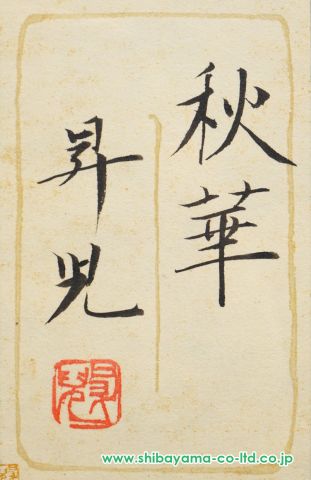 秋華
昇児
www.shibayama-co-ltd.co.jp